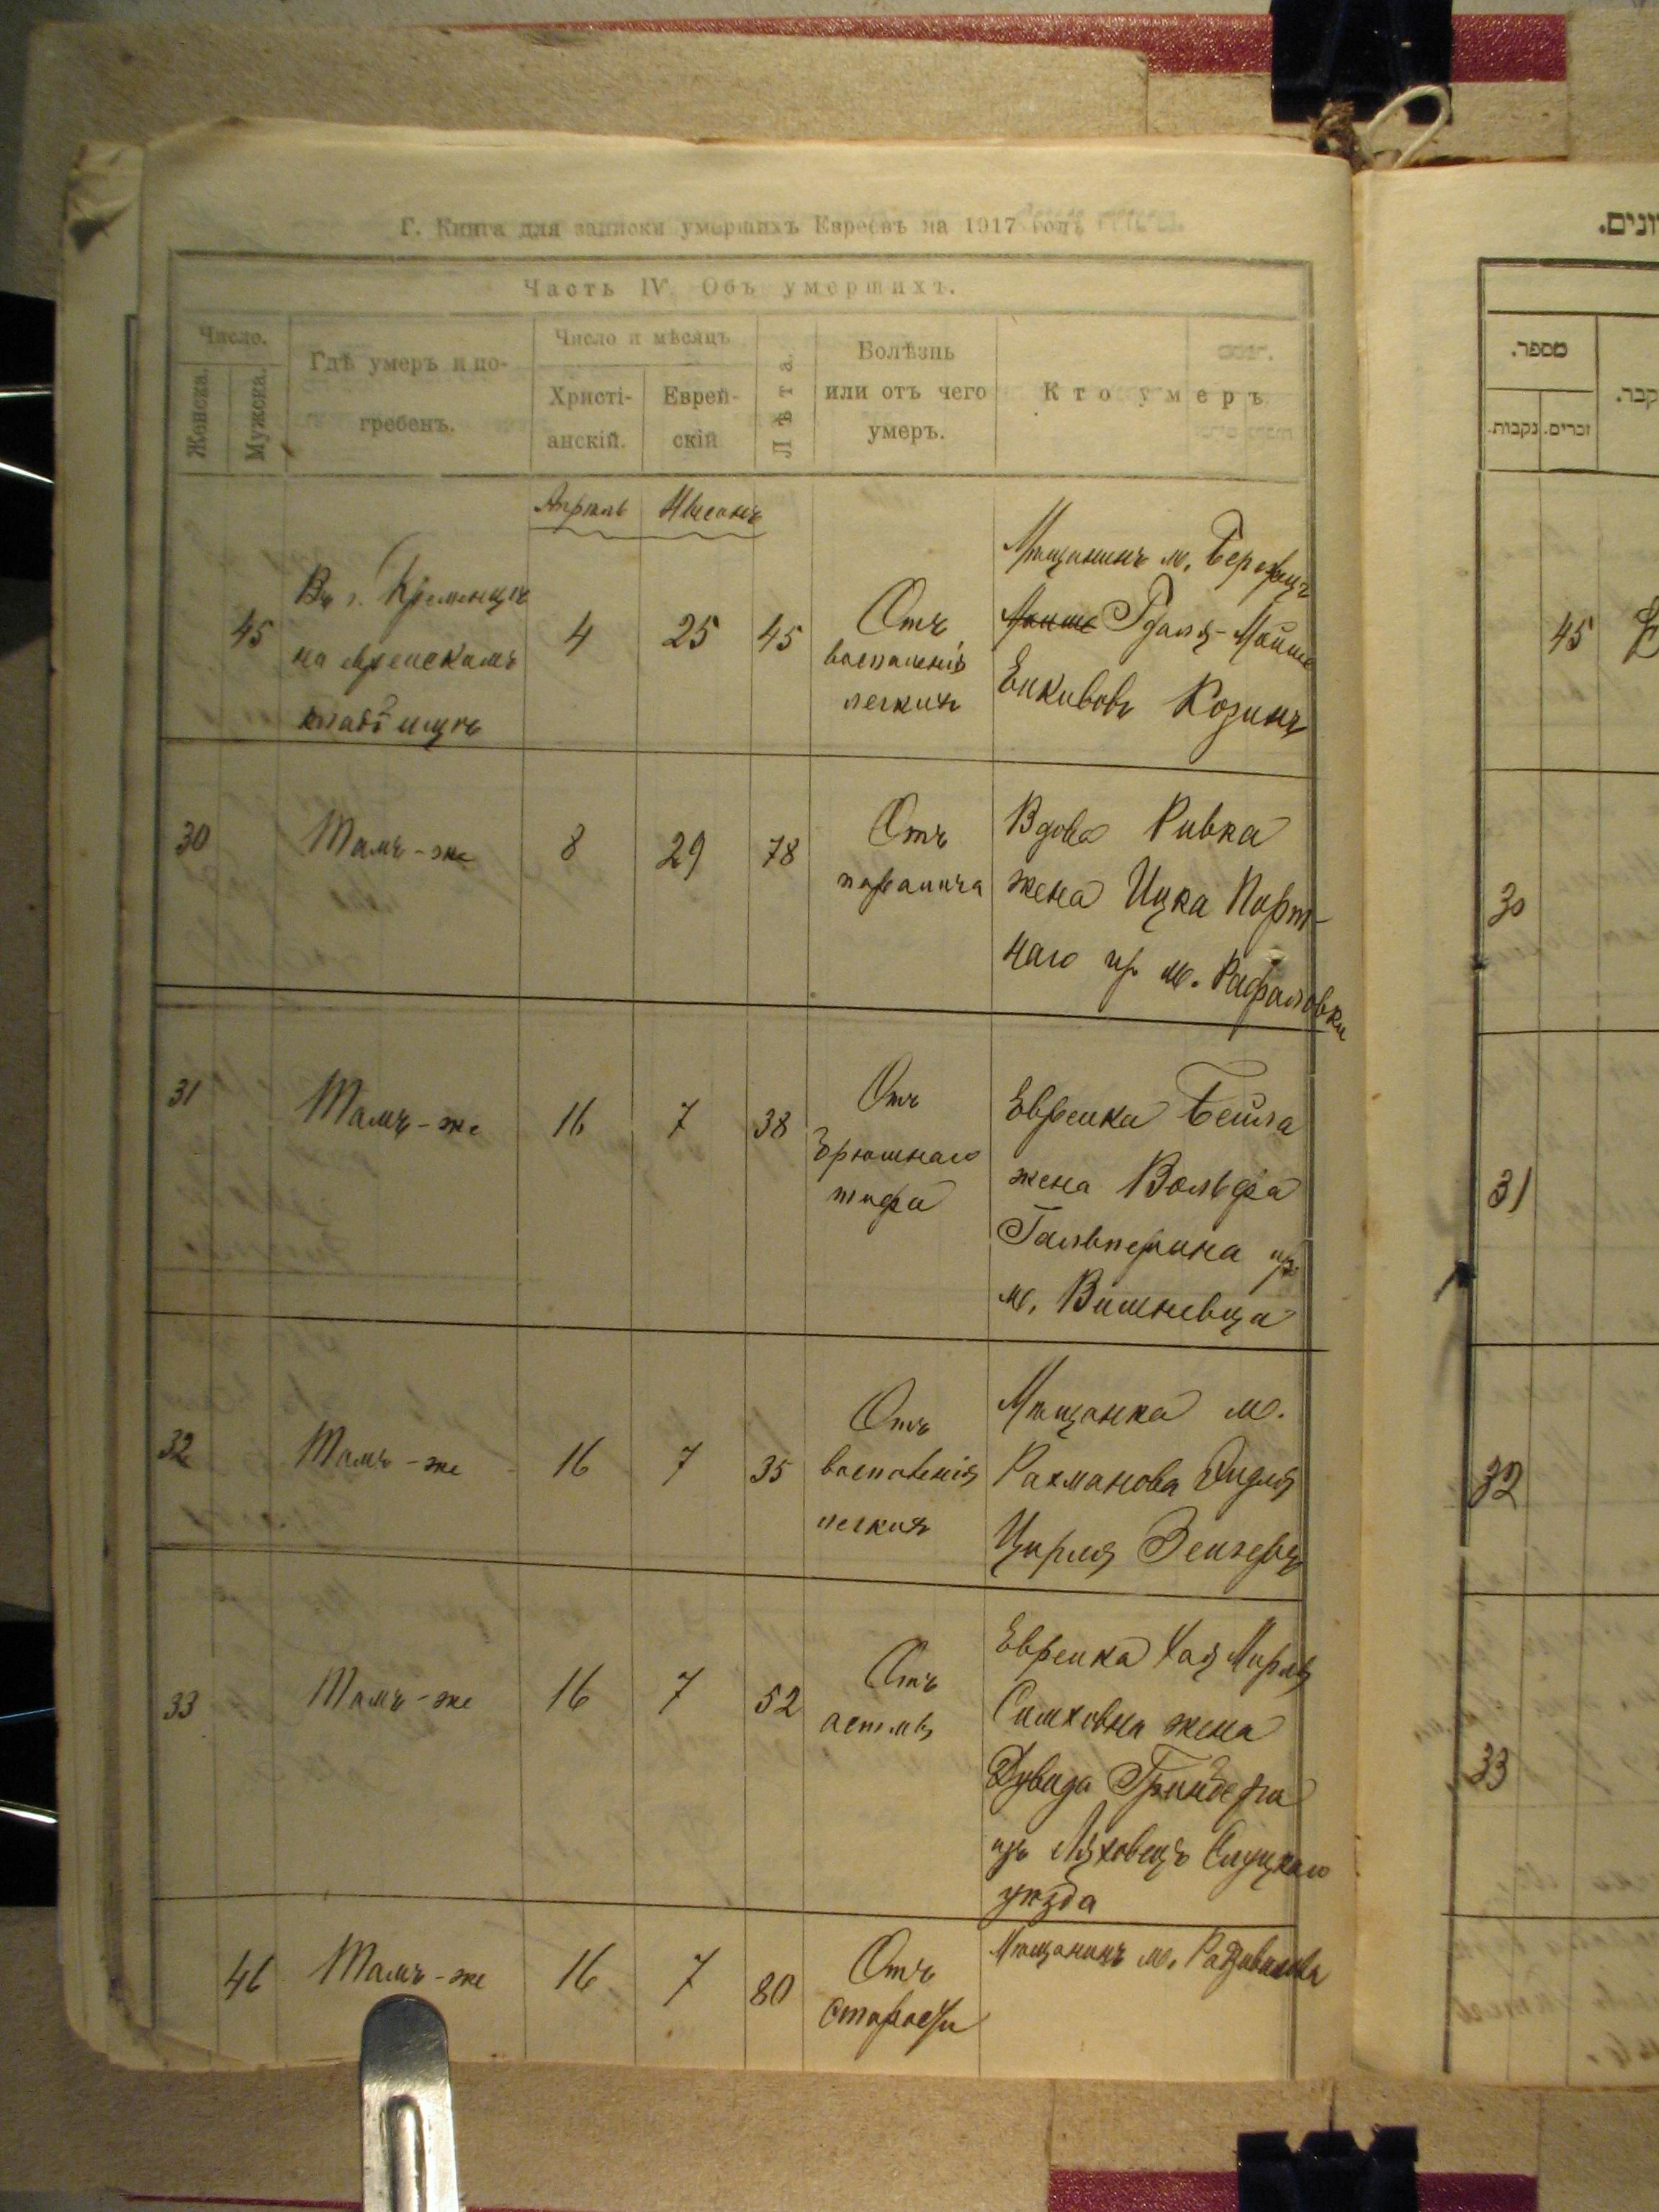 Г. Книга для записки умершихъ Евреевъ на 1917 годъ
Часть IV. Объ умершихъ.
Число.
Женска.
Мужска.
Гдѣ умеръ и по-
гребенъ.
Число и мѣсяцъ
Христі-
анскій.
Еврей-
скій
Лѣта.
Болѣзнь
или отъ чего
умеръ.
Кто умеръ
Апрѣль Нисанъ
45
Въ г. Кременцѣ
на еврейскомъ
кладбищѣ
4
25
45
Отъ
воспаленія
легкихъ
Мѣщанинъ м. Бережецъ
Мойше Гдаля-Мойше
Енкивовъ Розинъ
30
Тамъ-же
8
29
78
Отъ
паралича
Вдова Ривка
жена Ицка Порт-
наго из м. Рафаловки
31
Тамъ-же
16
7
38
Отъ
брюшнаго
тифа
Еврейка Бейла
жена Вольфа
Гальперина изъ
м. Вишневца
32
Тамъ-же
16
7
35
Отъ
воспаленія
легкихъ
Мѣщанка м.
Рахманова Эйдля
Цирля Зейгеръ
33
Тамъ-же
16
7
52
Отъ
астмы
Еврейка Хая Мирля
Симховна жена
Давида Гринберга
изъ Ляховецъ Слуцкаго
уѣзда
46
Тамъ-же
16
7
80
Отъ
старости
Мѣщанинъ м. Радзивилова
מספר.
נקבות.
זכרים.
45
30
31
32
33